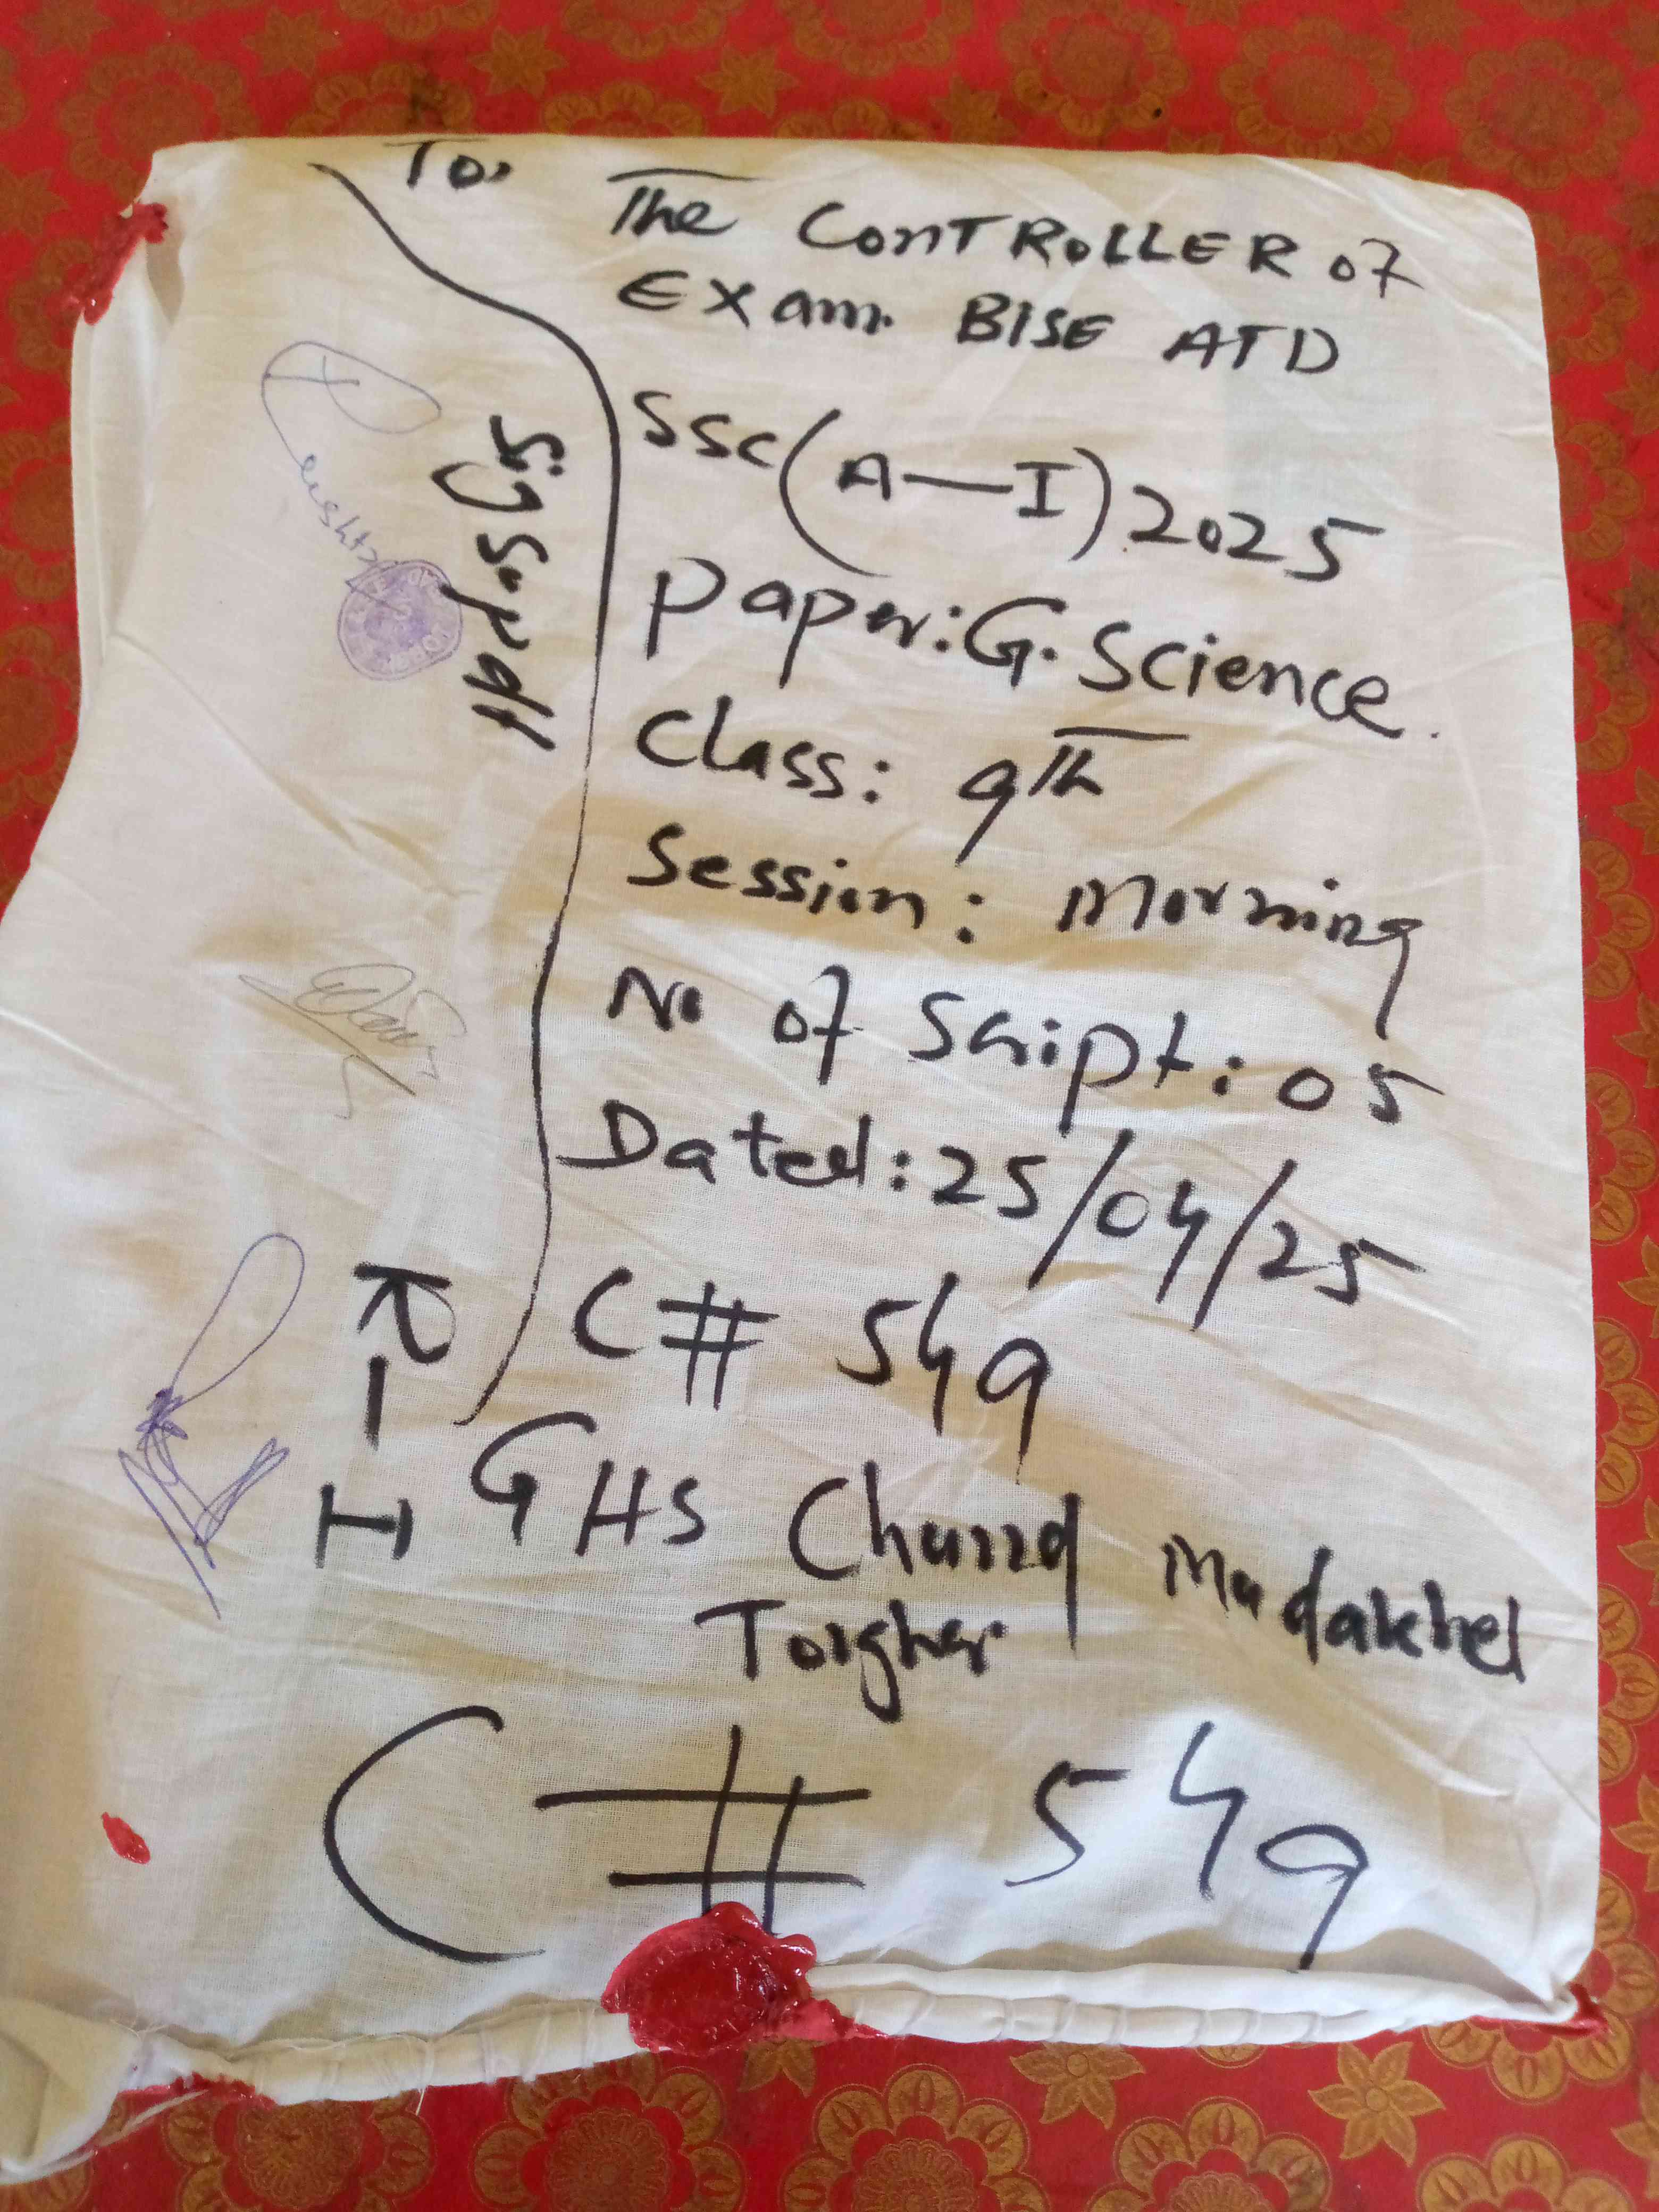 To,
The CONTROLLER of
Exam. BISE ATD
SSC (A—I) 2025
Paper: G. Science.
Class: 9th
Session: Morning
No of Script: 05
Dated: 25/04/25
C# 549
GHS Churra Madakhel
Torgher
C# 549
Sig Supdtt
R—I